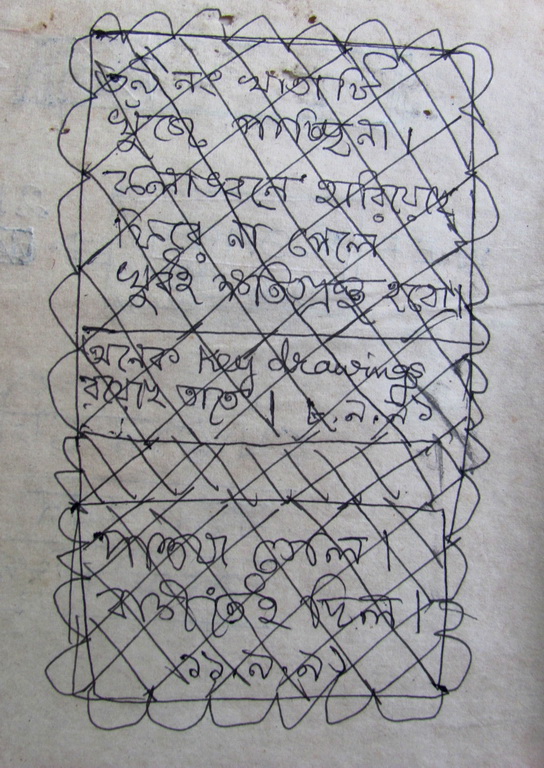 ৩নং খাতাটি
খুঁজে পাচ্ছিনা।
কলাভবনে হারিয়েছে
ফিরে না পেলে
খুবই ক্ষতিগ্রস্ত হবো।
অনেক Key drawings
রয়েছে তাতে। ৮.৯.৯১
পাওয়া গেল।
বাড়ীতেই ছিল।
১১.৯.৯১